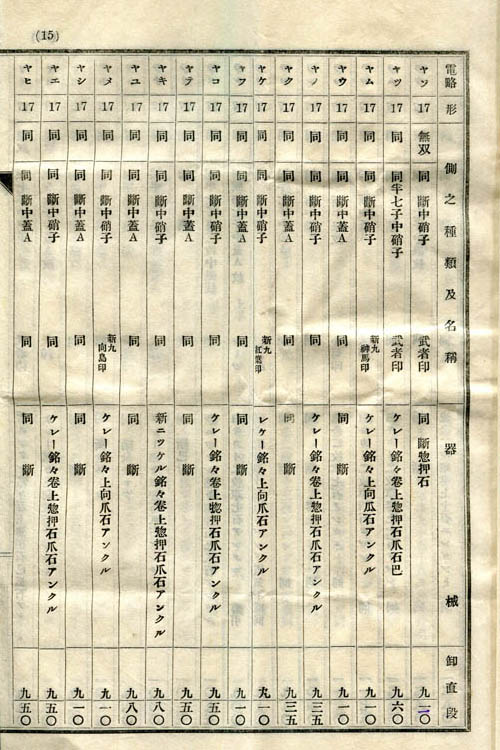 (15)
電略 形 側之種類及名稱 器械 卸直段
ヤソ 17 無双 同 斷中硝子 武者印 同 斷惣押石 九二〇
ヤツ 17 同 同半七子中硝子 武者印 ケレー銘々卷上惣押石爪石巴 九六〇
ヤム 17 同 同 斷中硝子 新九神馬印 ケレー銘々上向爪石アンクル 九一〇
ヤウ 17 同 同 斷中蓋A 同 同 斷 九一〇
ヤノ 17 同 同 斷中硝子 同 ケレー銘々卷上惣押石爪石アンクル 九三五
ヤク 17 同 同 斷中蓋A 同 同 斷 九三五
ヤケ 17 同 同 斷中硝子 新九紅葉印 レケー銘々上向爪石アンクル 九一〇
ヤフ 17 同 同 斷中蓋A 同 同 斷 九一〇
ヤコ 17 同 同 斷中硝子 同 ケレー銘々卷上惣押石爪石アンクル 九五〇
ヤテ 17 同 同 斷中蓋A 同 同 斷 九五〇
ヤキ 17 同 同 斷中硝子 同 新ニッケル銘々卷上惣押石爪石アンクル 九八〇
ヤユ 17 同 同 斷中蓋A 同 同 斷 九八〇
ヤメ 17 同 同 斷中硝子 新九向島印 ケレー銘々上向爪石アンクル 九一〇
ヤシ 17 同 同 斷中蓋A 同 同 斷 九一〇
ヤエ 17 同 同 斷中硝子 同 ケレー銘々卷上惣押石爪石アンクル 九五〇
ヤヒ 17 同 同 斷中蓋A 同 同 斷 九五〇